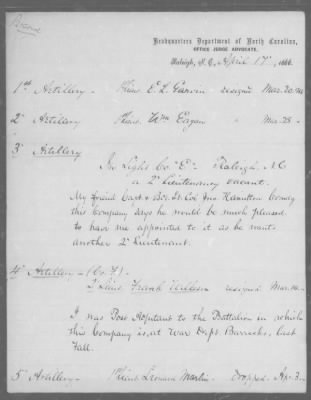 Headquarters Department of North Carolina,
OFFICE JUDGE ADVOCATE.
Raleigh, N. C., April 17", 1866.
1st Artillery - 1 Lieut. E. L. resigned Mar. 20.
2" Artillery 1 Lieut. Wm Eagan " Mar. 28 -
3" Artillery
In Light Co. "E" - Raleigh, N.C
a 2" Lieutenancy vacant.
My friend Capt & Bvt. Lt. Col Jno. Hamilton Comdg
this Company says he would be much pleased
to have me appointed to it as he wants
another 2" Lieutenant.
4" Artillery - (Co. F) -
2 Lieut Frank Wilkeson resigned Mar.
I was Post Adjutant to the Battalion in which
this Company is, at War Dept. Barracks, last
Fall.
5" Artillery - 1 Lieut Leonard Martin - Dropped - Ap. 3 -